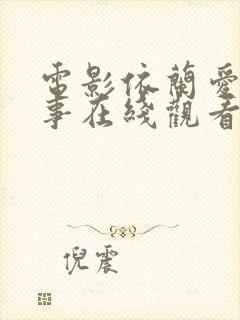 電影依蘭愛
事在綫觀看
倪震